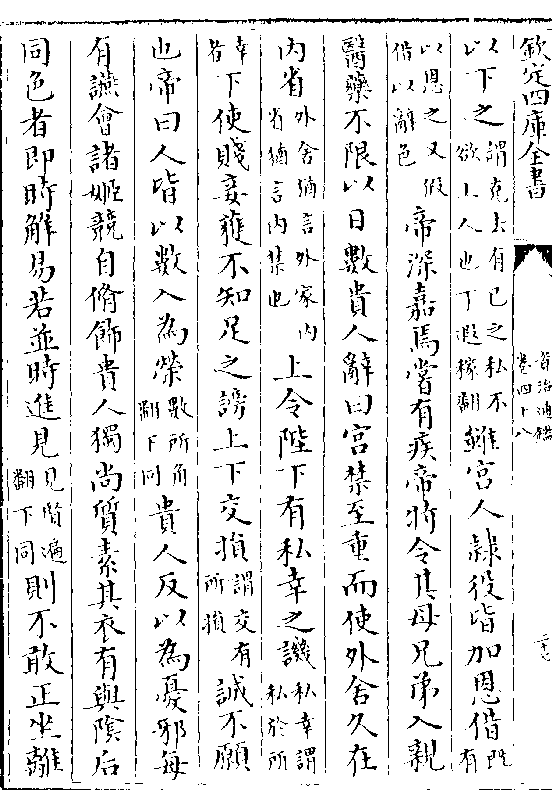 欽定四庫全書
資治通鑑
卷四十八
以下之謂克去有已之私不
欲上人也下遐稼翻雖宮人隸役皆加恩借既有
以恩之又假
借以辭色帝深嘉焉嘗有疾帝特令其母兄弟入親
醫藥不限以日數貴人辭曰宮禁至重而使外舍久在
内省外舍猶言外家内
省猶言内禁也上令陛下有私幸之譏私幸謂
私於所
幸
者下使賤妾獲不知足之謗上下交損謂交有
所損誠不願
也帝曰人皆以數入為榮數所角
翻下同貴人反以為憂邪每
有讌會諸姬競自脩飾貴人獨尚質素其衣有與隂后
同色者即時解易若並時進見見賢遍
翻下同則不敢正坐離